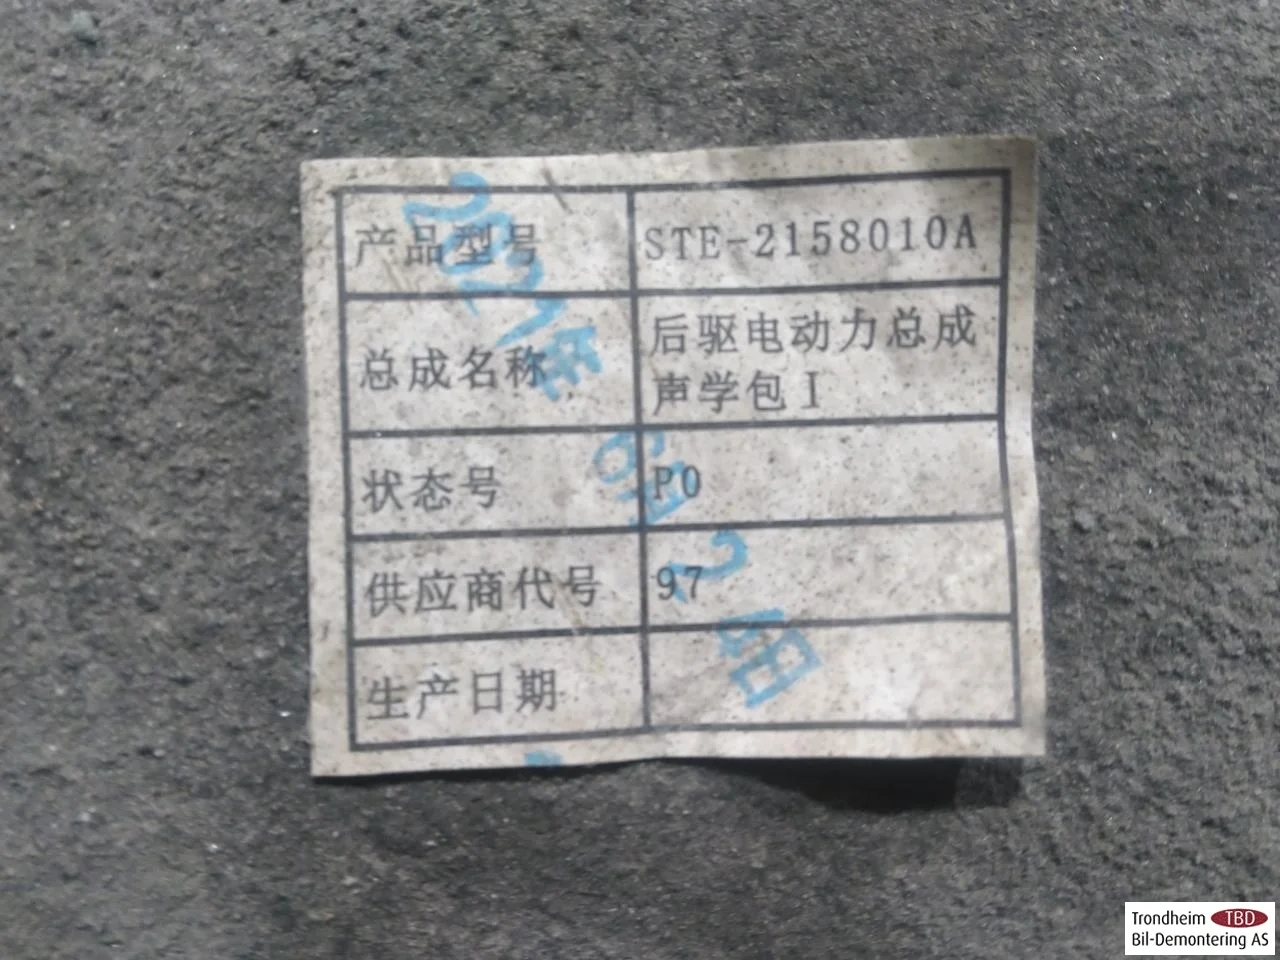 产品型号 STE-2158010A
总成名称 后驱电动力总成
声学包 I
状态号 P0
供应商代号 97
生产日期
Trondheim TBD
Bil-Demontering AS